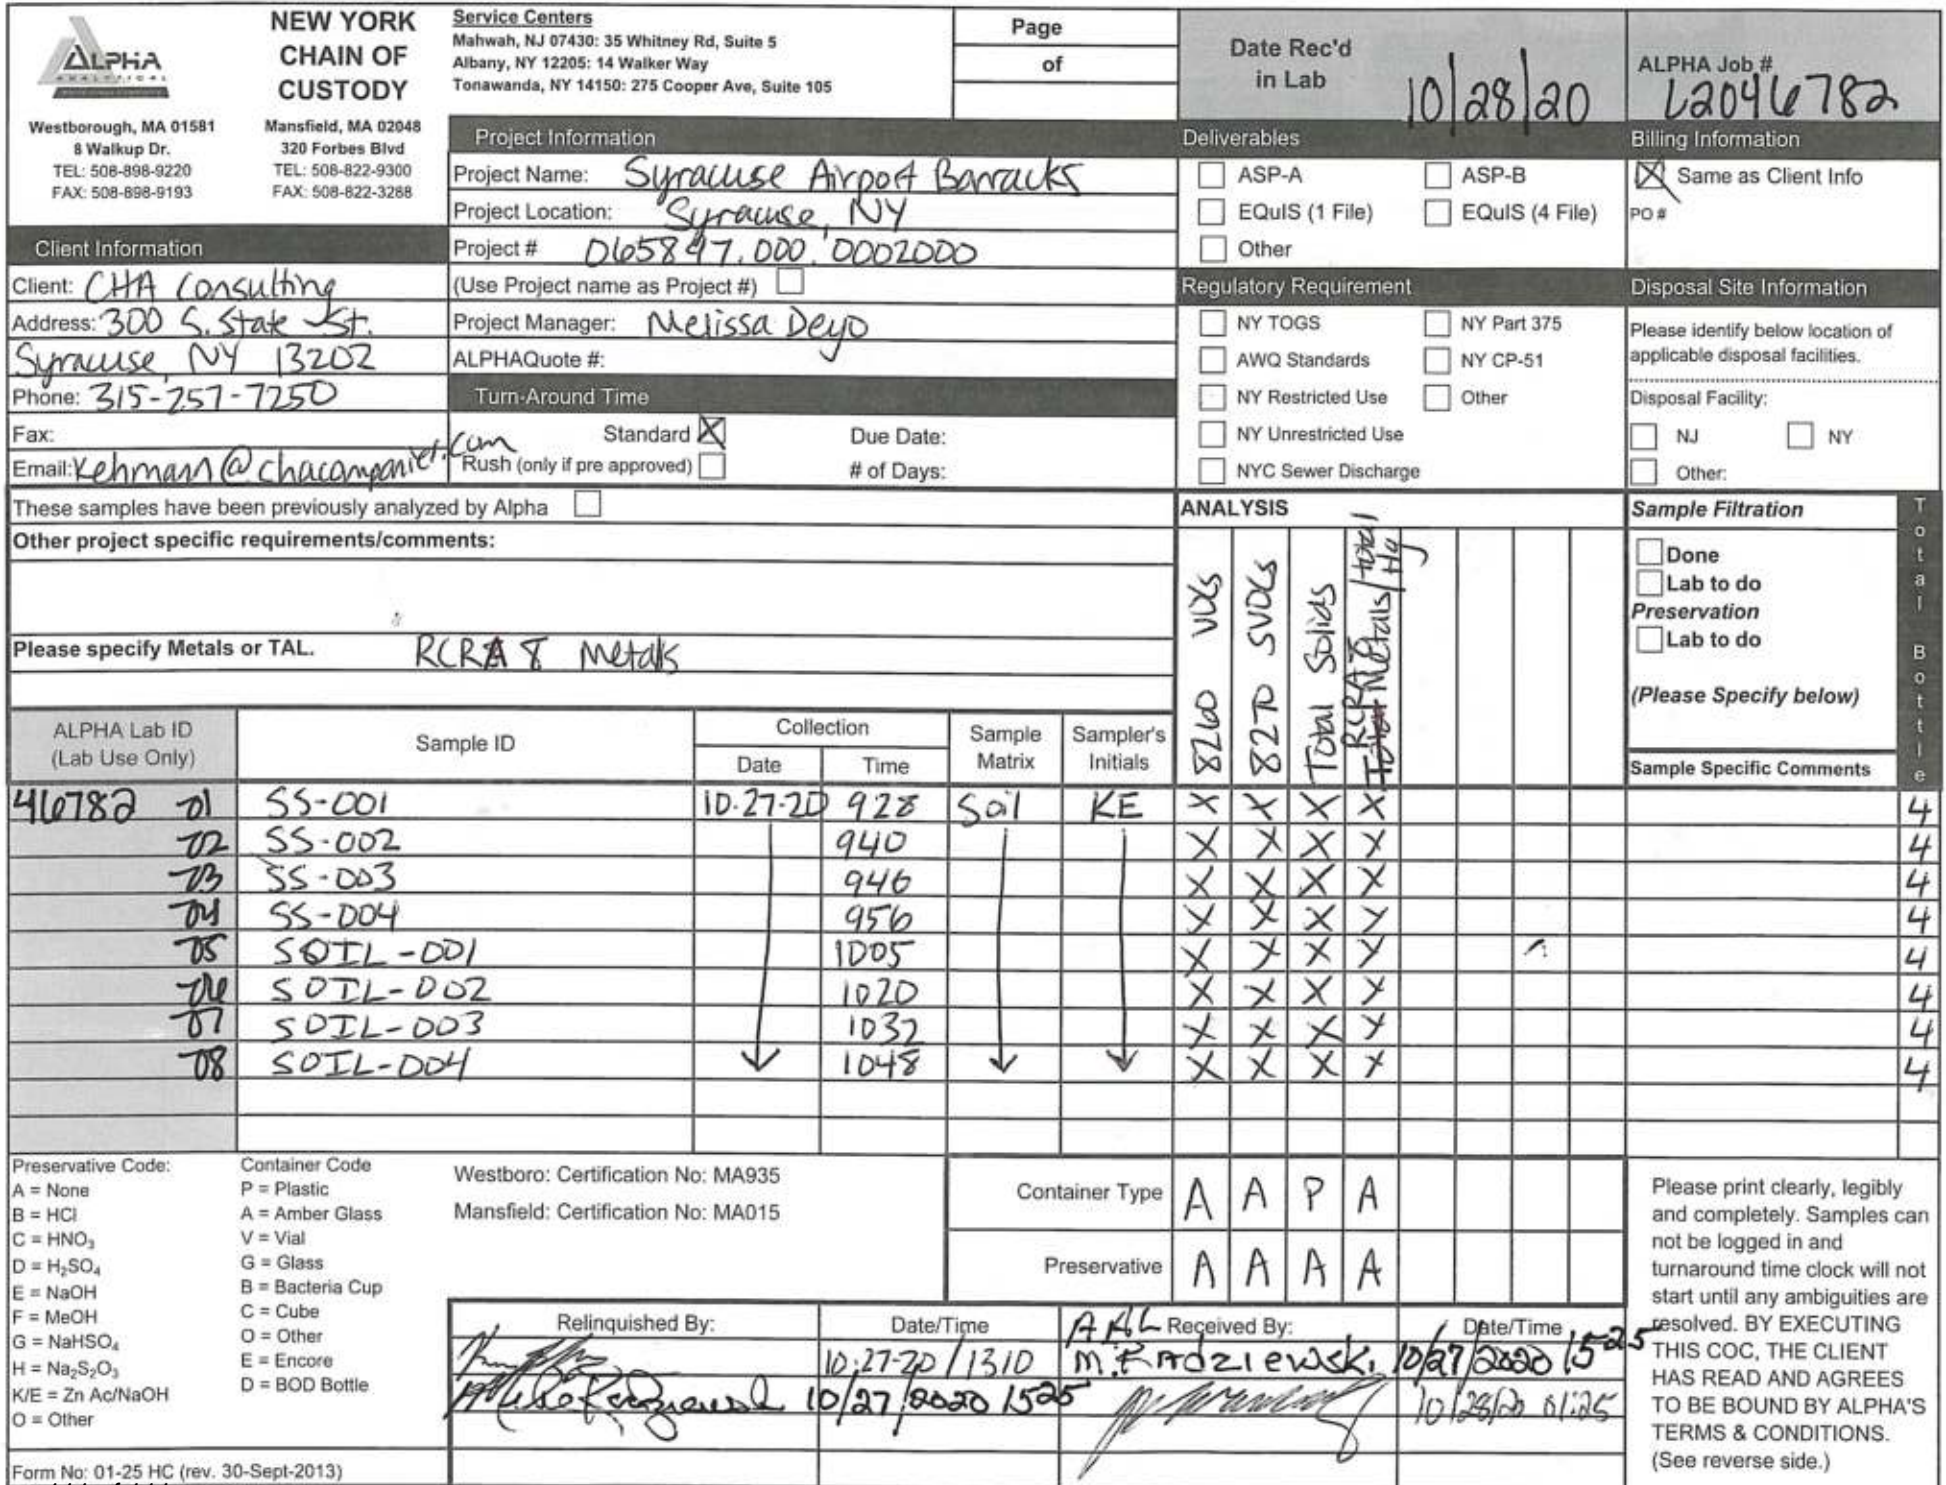 ALPHA
ANALYTICAL
NEW YORK
CHAIN OF
CUSTODY
Westborough, MA 01581
8 Walkup Dr.
TEL: 508-898-9220
FAX: 508-898-9193
Mansfield, MA 02048
320 Forbes Blvd
TEL: 508-822-9300
FAX: 508-822-3288
Service Centers
Mahwah, NJ 07430: 35 Whitney Rd, Suite 5
Albany, NY 12205: 14 Walker Way
Tonawanda, NY 14150: 275 Cooper Ave, Suite 105
Page
of
Date Rec'd
in Lab
10/28/20
ALPHA Job #
L2046782
Client Information
Client: CHA Consulting
Address: 300 S. State St.
Syracuse, NY 13202
Phone: 315-257-7250
Fax:
Email: Kehmann@chacompanies.com
Project Information
Project Name: Syracuse Airport Barracks
Project Location: Syracuse, NY
Project # 065897.000.0002000
(Use Project name as Project #)
Project Manager: Melissa Deyo
ALPHAQuote #:
Turn-Around Time
Standard X Due Date:
Rush (only if pre approved) # of Days:
Deliverables
ASP-A ASP-B
EQuIS (1 File) EQuIS (4 File)
Other
Regulatory Requirement
NY TOGS NY Part 375
AWQ Standards NY CP-51
NY Restricted Use Other
NY Unrestricted Use
NYC Sewer Discharge
Billing Information
X Same as Client Info
PO #
Disposal Site Information
Please identify below location of
applicable disposal facilities.
Disposal Facility:
NJ NY
Other:
These samples have been previously analyzed by Alpha
Other project specific requirements/comments:
Please specify Metals or TAL. RCRA 8 Metals
ANALYSIS
8260 VOCs
8270 SVOCs
Total Solids
RCRA 8 Metals/total Hg
Sample Filtration
Done
Lab to do
Preservation
Lab to do
(Please Specify below)
Sample Specific Comments
Total Bottle
ALPHA Lab ID
(Lab Use Only)
Sample ID
Collection
Date Time
Sample
Matrix
Sampler's
Initials
46782 01 SS-001 10-27-20 928 Soil KE X X X X 4
02 SS-002 940 X X X X 4
03 SS-003 946 X X X X 4
04 SS-004 956 X X X X 4
05 SOIL-001 1005 X X X X 4
06 SOIL-002 1020 X X X X 4
07 SOIL-003 1032 X X X X 4
08 SOIL-004 1048 X X X X 4
Preservative Code:
A = None
B = HCl
C = HNO3
D = H2SO4
E = NaOH
F = MeOH
G = NaHSO4
H = Na2S2O3
K/E = Zn Ac/NaOH
O = Other
Container Code
P = Plastic
A = Amber Glass
V = Vial
G = Glass
B = Bacteria Cup
C = Cube
O = Other
E = Encore
D = BOD Bottle
Westboro: Certification No: MA935
Mansfield: Certification No: MA015
Container Type A A P A
Preservative A A A A
Relinquished By: Date/Time AAL Received By: Date/Time
10-27-20/1310 M. Radziewski 10/27/2020 1525
10/27/2020 1525 10/28/20 01:25
Please print clearly, legibly
and completely. Samples can
not be logged in and
turnaround time clock will not
start until any ambiguities are
resolved. BY EXECUTING
THIS COC, THE CLIENT
HAS READ AND AGREES
TO BE BOUND BY ALPHA'S
TERMS & CONDITIONS.
(See reverse side.)
Form No: 01-25 HC (rev. 30-Sept-2013)